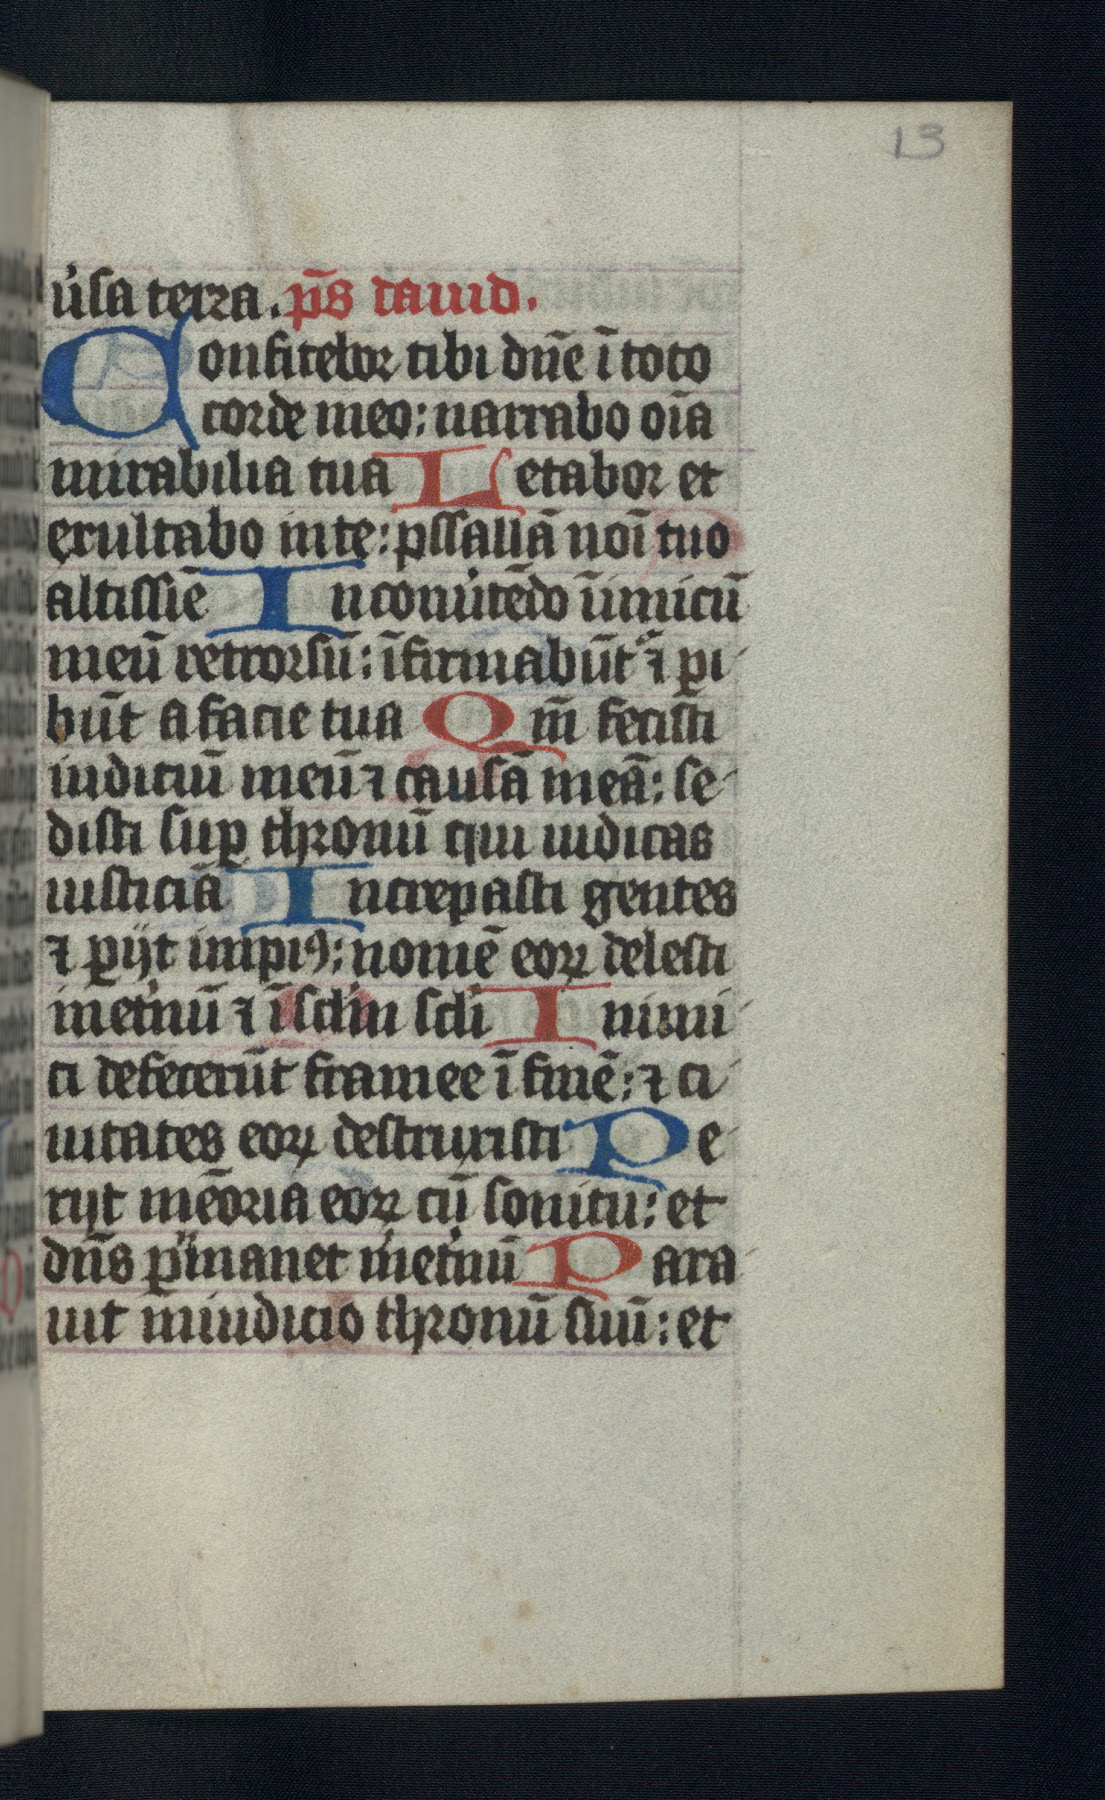 13
u̾sa terra. ps̄ dauid.
Confitebor tibi dn̄e ī toto
corde meo: narrabo oīa
mirabilia tua Letabor et
exultabo inte: pssallā noī tuo
altissīe In conu̾tēdo īnimicū
meū retrorsū: īfirmabūt᷑ ⁊ ꝑi
būt a facie tua Qm̄ fecisti
iudiciū meū ⁊ causā meā: se
disti suꝑ thronū qui iudicas
iusticiā Increpasti gentes
⁊ ꝑijt impiꝰ: nomē eoꝝ delesti
inet̾nū ⁊ ī sc̄lm sc̄li Inimi
ci defecerūt framee ī finē: ⁊ ci
uitates eoꝝ destruxisti Pe
rijt mēoria eoꝝ cū sonitu: et
dn̄s ꝑmanet inet̾nū Para
uit iniudicio thronū suū: et